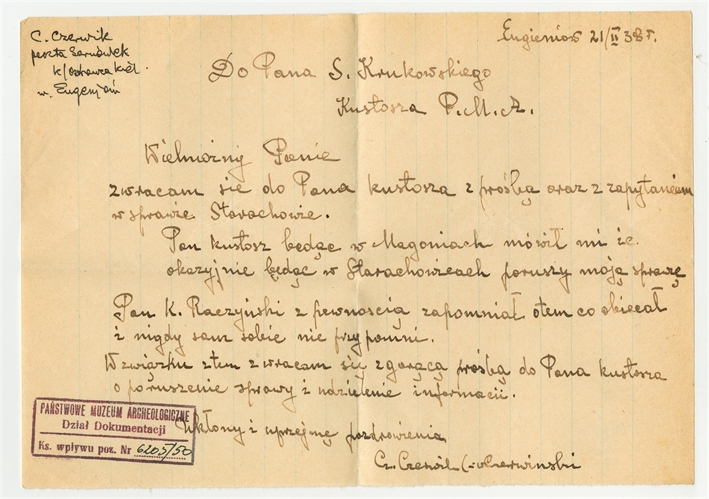 C. Czerwik
poczta Sarnówek
k/Ostrowca Kiel.
w. Eugenjów
Eugieniów 21/II 38 r.
Do Pana S. Krukowskiego
Kustosza P.M.A.
Wielmożny Panie
Zwracam się do Pana kustosza z prośbą oraz z zapytaniem
w sprawie Starachowic.
Pan kustosz będąc w Magoniach mówił mi że
okazyjnie będąc w Starachowicach poruszy moją sprawę
Pan K. Raczyński z pewnością zapomniał otem co obiecał
i nigdy sam sobie nie przypomni.
W związku ztem zwracam się z gorącą prośbą do Pana kustosza
o poruszenie sprawy i udzielenie informacji.
Ukłony i uprzejme pozdrowienia
Cz.
PAŃSTWOWE MUZEUM ARCHEOLOGICZNE
Dział Dokumentacji
Ks. wpływu poz. Nr 6205/50